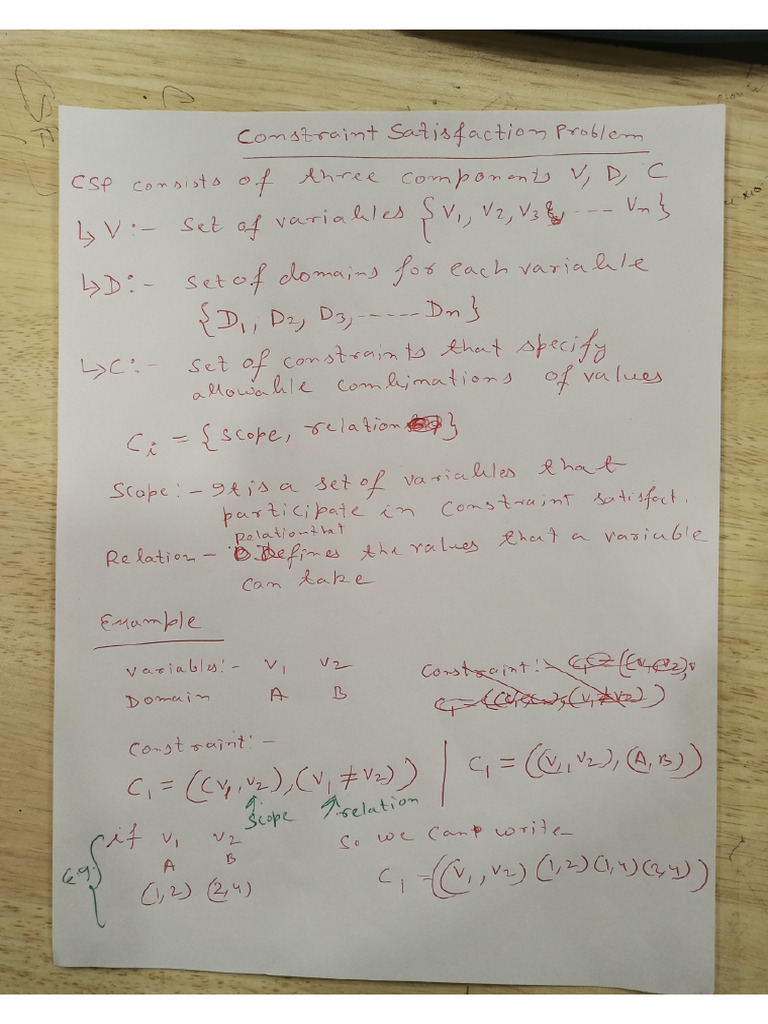 Constraint Satisfaction Problem
CSP consists of three components V, D, C
↳ V:- Set of variables {V1, V2, V3, ---- Vn}
↳ D:- set of domains for each variable
{D1, D2, D3, ------ Dn}
↳ C:- set of constraints that specify
allowable combinations of values
Ci = {scope, relation}
Scope:- It is a set of variables that
participate in constraint satisfact.
Relation that
Relation - Defines the values that a variable
can take
Example
Variables:- V1 V2
Domain A B
Constraint:
Constraint:-
C1 = ((V1, V2), (V1 ≠ V2))
C1 = ((V1, V2), (A, B))
scope relation
e.g. if V1 V2
A B
(1,2) (2,4)
So we can write
C1 = ((V1, V2) (1,2) (1,4) (2,4))